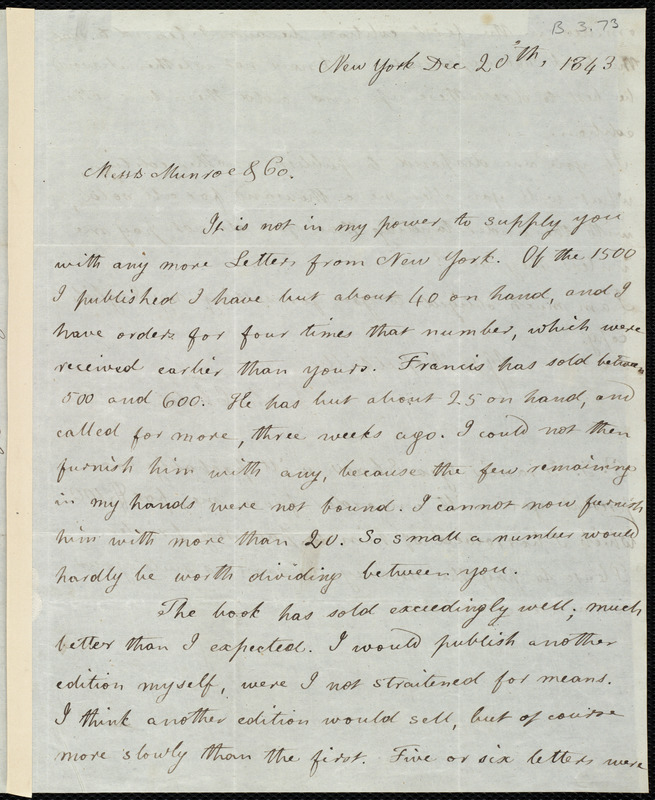 B. 3. 73
New York Dec 20th, 1843
Messs Munroe & Co.
It is not in my power to supply you
with any more Letters from New York. Of the 1500
I published I have but about 40 on hand, and I
have orders for four times that number, which were
received earlier than yours. Francis has sold between
500 and 600. He has but about 25 on hand, and
called for more, three weeks ago. I could not then
furnish him with any, because the few remaining
in my hands were not bound. I cannot now furnish
him with more than 20. So small a number would
hardly be worth dividing between you.
The book has sold exceedingly well; much
better than I expected. I would publish another
edition myself, were I not straitened for means.
I think another edition would sell, but of course
more slowly than the first. Five or six letters were